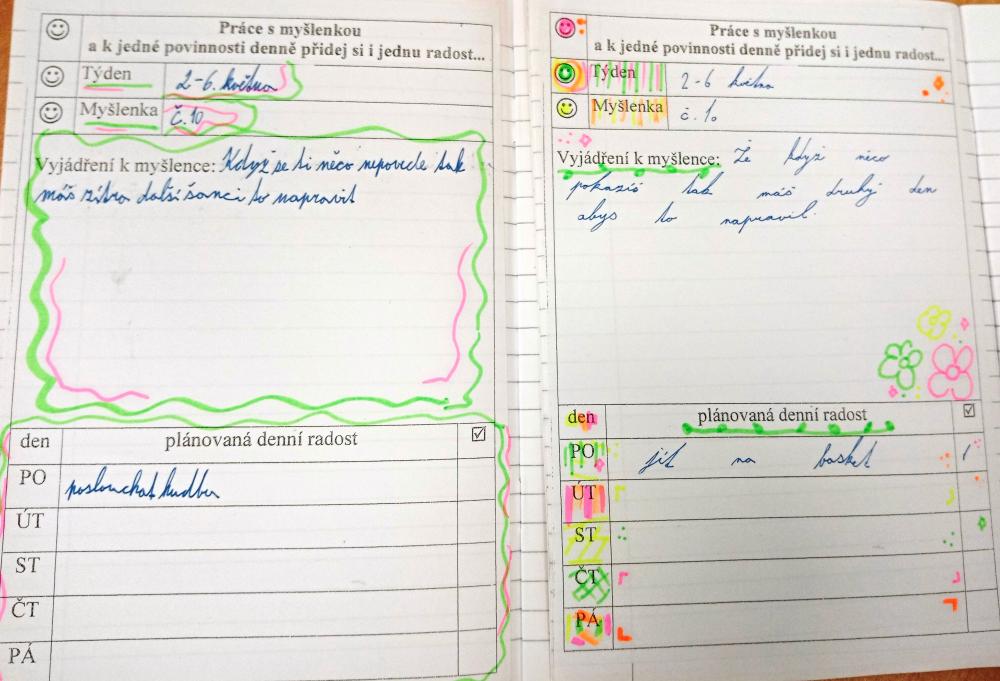 Práce s myšlenkou
a k jedné povinnosti denně přidej si i jednu radost...
Týden 2-6. května
Myšlenka č.10
Vyjádření k myšlence: Když se ti něco nepovede tak
máš zítra další šanci to napravit
den plánovaná denní radost ☑
PO poslouchat hudbu
ÚT
ST
ČT
PÁ
Práce s myšlenkou
a k jedné povinnosti denně přidej si i jednu radost...
Týden 2-6 května
Myšlenka č. 10
Vyjádření k myšlence: Že když něco
pokazíš tak máš druhý den
abys to napravil.
den plánovaná denní radost ☑
PO jít na basket /
ÚT
ST
ČT
PÁ